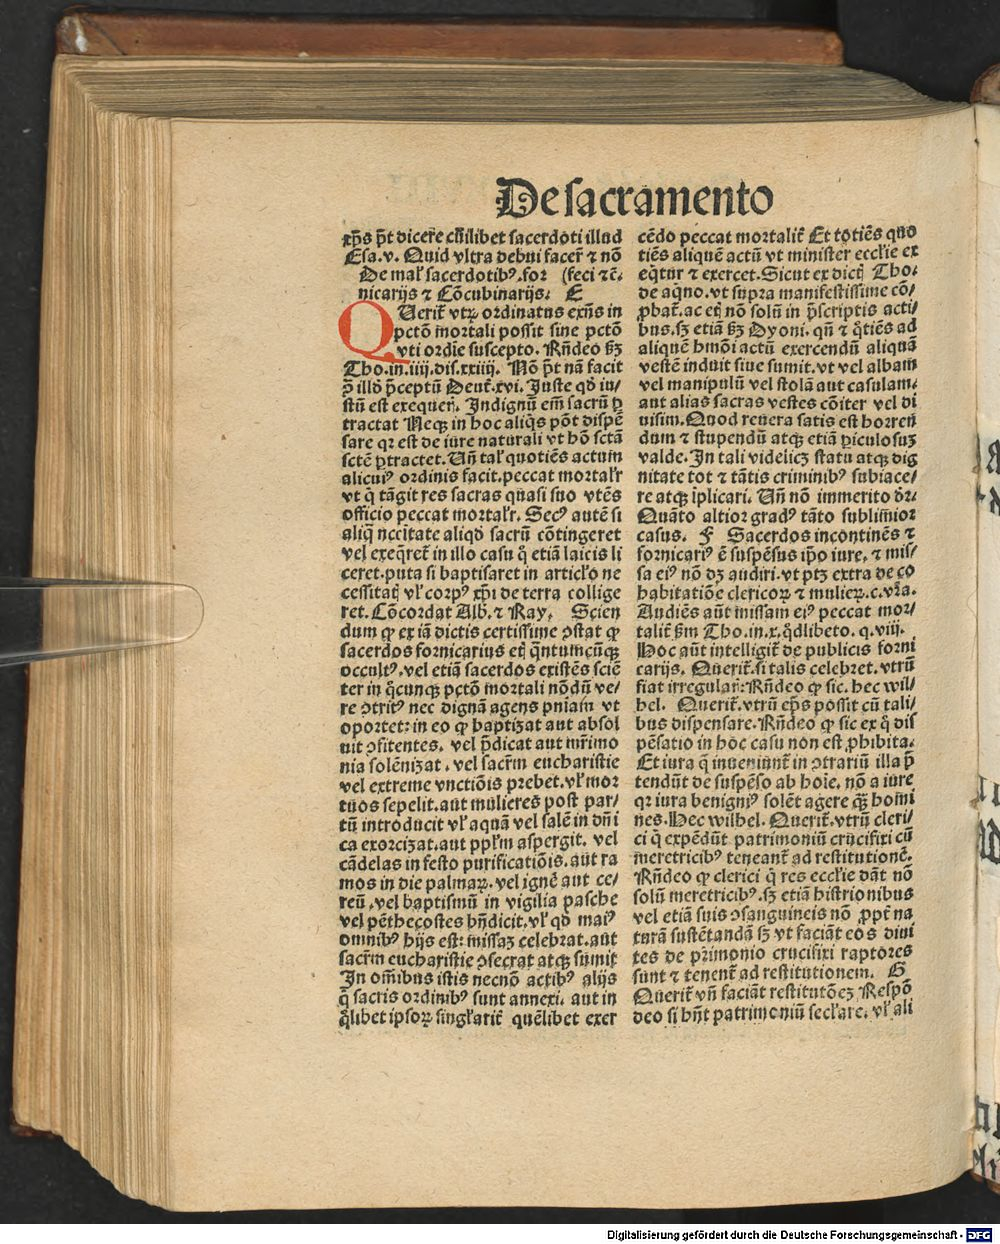 De sacramento
xp̄s pñt dicere cuilibet sacerdoti illud
Esa.v. Quid vltra debui facer̄ ⁊ nō
De mal̓ sacerdotibꝰ.for (feci ⁊c̄.
nicarijs ⁊ Cōcubinarijs. E
QUerit̄ vtꝝ ordinatus exn̄s in
pctō mortali possit sine pctō
vti ordīe suscepto. Rn̄deo ßꝫ
Tho.in.iiij.dis.xxiiij. Nō pñt nā facit
ꝯ illō p̄ceptū Deut̄.xvi. Iuste qđ iu/
stū est exequer̄. Indignū em̄ sacrū ꝑ
tractat Neqꝫ in hoc aliq̄s pōt dispē
sare qꝛ est de iure naturali vt hō sctā
sctē ꝑtractet. Uñ tal̓ quotiēs actum
alicuiꝰ ordinis facit.peccat mortal̓r
vt q̄ tāgit res sacras quasi suo vtēs
officio peccat mortal̓r. Secꝰ autē si
aliq̄ nccītate aliqđ sacrū cōtingeret
vel exeq̄ret̄ in illo casu q̄ etiā laicis li
ceret.puta si baptisaret in articl̓o ne
cessitat̄ vl̓ corpꝰ xp̄i de terra collige
ret. Cōcordat Alb.⁊ Ray. Scien
dum ꝙ ex iā dictis certissime ꝯstat ꝙ
sacerdos fornicarius etꝫ q̄ntumcūqꝫ
occultꝰ.vel etiā sacerdos existēs sciē
ter in q̄cunqꝫ pctō mortali nōdū ve/
re ꝯtritꝰ nec dignā agens pniam vt
oportet: in eo ꝙ baptizat aut absol
uit ꝯfitentes. vel p̄dicat aut mr̄imo
nia solēnizat. vel sacr̄m eucharistie
vel extreme vnctiōis prebet.vl̓ mor
tuos sepelit.aut mulieres post par/
tū introducit vl̓ aquā vel salē in dñi
ca exorcizat.aut ppl̓m aspergit. vel
cādelas in festo purificatiōis.aut ra
mos in die palmaꝝ.vel ignē aut ce/
reū .vel baptismū in vigilia pasche
vel pēthecostes bn̄dicit.vl̓ qđ maiꝰ
omnibꝰ hijs est: missaꝫ celebrat.aūt
sacr̄m eucharistie ꝯsecrat atqꝫ sumit
In om̄ibus istis necnō actibꝰ alijs
q̄ sacris ordinibꝰ sunt annexi. aut in
q̄libet ipsoꝝ singl̓arit̄ quēlibet exer
cēdo peccat mortalit̄ Et totiēs quo
tiēs aliquē actū vt minister eccl̓ie ex
eq̄tur ⁊ exercet. Sicut ex dict̄ Tho.
de aq̄no. vt supra manifestissime cō/
ꝓbat̄.ac etꝫ nō solū in p̄scriptis acti/
bus.sꝫ etiā ßꝫ Dyoni. qñ ⁊ q̄tiēs ad
aliquē hmōi actū exercendū aliquā
vestē induit siue sumit. vt vel albam
vel manipulū vel stolā aut casulam.
aut alias sacras vestes cōiter vel di
uisim. Quod reuera satis est horren
dum ⁊ stupendū atqꝫ etiā ꝑiculosuꝫ
valde. In tali videlicꝫ statu atqꝫ dig
nitate tot ⁊ tātis criminibꝰ subiace/
re atqꝫ īplicari. Uñ nō immerito dr̄.
Quāto altior gradꝰ tāto sublimior
casus. F Sacerdos incontinēs ⁊
fornicariꝰ ē suspēsus ip̄o iure. ⁊ mis/
sa eiꝰ nō dꝫ audiri. vt ptꝫ extra de co
habitatiōe clericoꝝ ⁊ mulieꝝ.c.vr̄a.
Audiēs aūt missam eiꝰ peccat mor/
talit̄ ßm Tho.in.x.q̄dlibeto.q.viij.
Hoc aūt intelligit̄ de publicis forni
carijs. Querit̄.si talis celebret. vtrū
fiat irregular̄: Rn̄deo ꝙ sic. hec wil/
hel. Querit̄. vtrū ep̄s possit cū tali/
bus dispensare. Rn̄deo ꝙ sic ex q̄ dis
pēsatio in hoc casu non est ꝓhibita.
Et iura q̄ inueniunt̄ in ꝯtrariū illa p̄
tendūt de suspēso ab hoīe. nō a iure
qꝛ iura benigniꝰ solēt agere q̄ꝫ homi
nes. Hec wilhel. Querit̄. vtrū cleri/
ci q̄ expēdūt patrimoniū crucifixi cū
meretricibꝰ teneant̄ ad restitutionē.
Rn̄deo ꝙ clerici q̄ res eccl̓ie dāt nō
solū meretricibꝰ.sꝫ etiā histrionibus
vel etiā suis ꝯsanguineis nō ꝓpt̄ na
turā sustētandā sꝫ vt faciāt eos diui
tes de pr̄imonio crucifixi raptores
sunt ⁊ tenent̄ ad restitutionem. G
Querit̄ vñ faciāt restitutōeꝫ Respō
deo si hñt patrimoniū secl̓are. vl̓ ali
Digitalisierung gefördert durch die Deutsche Forschungsgemeinschaft - DFG